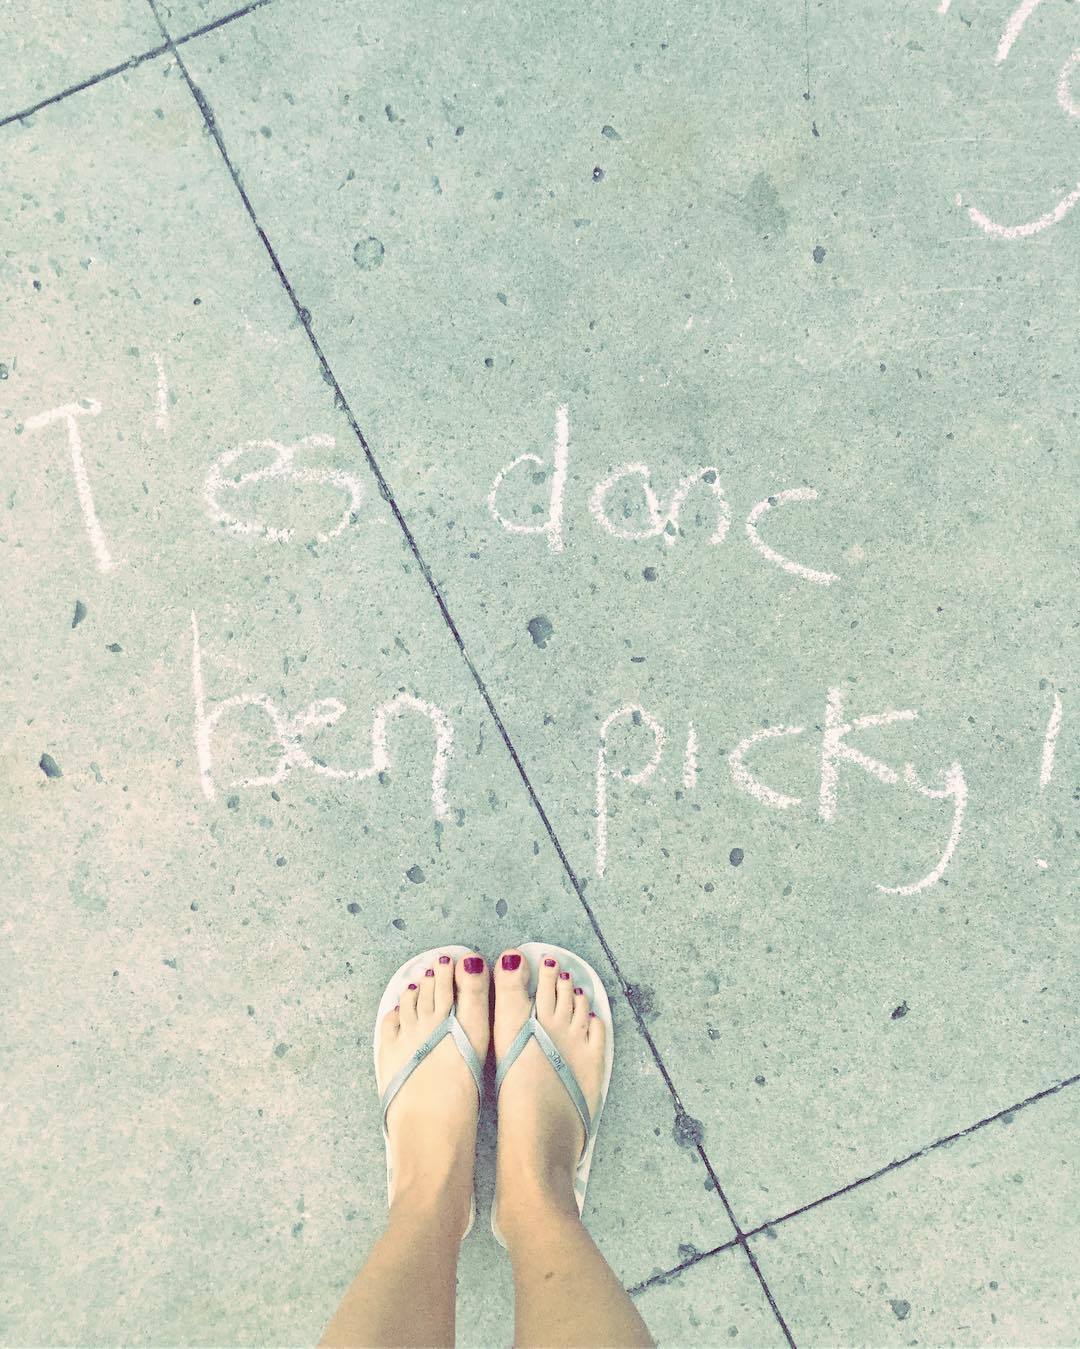 T'es donc
ben picky!